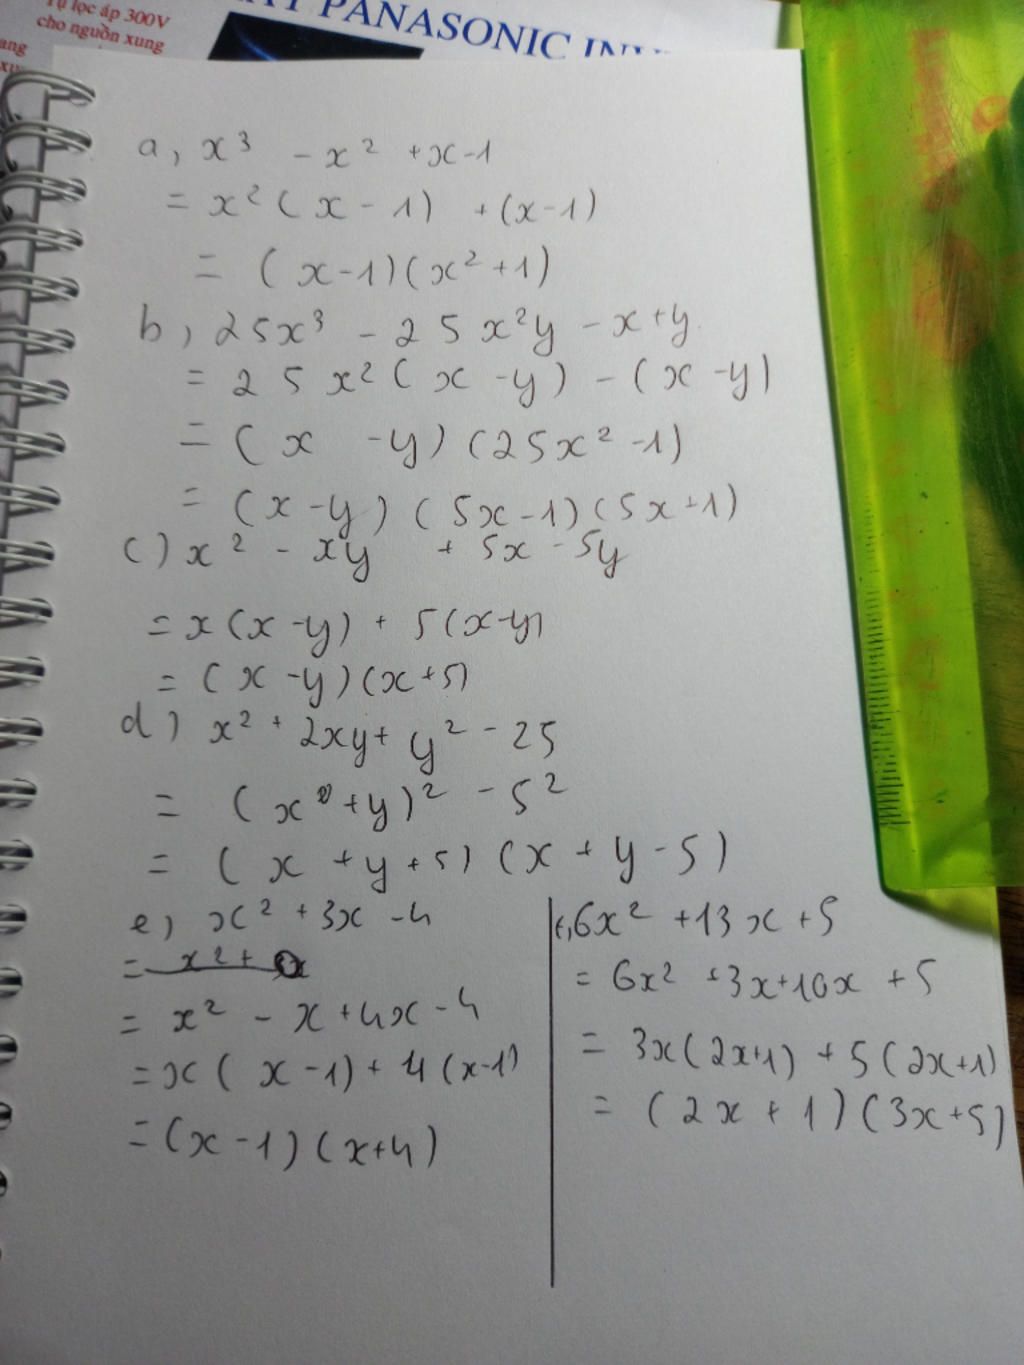 Tụ lọc áp 300V
cho nguồn xung
PANASONIC
a, x³ - x² + x - 1
= x² (x - 1) + (x - 1)
= (x - 1)(x² + 1)
b, 25x³ - 25x²y - x + y
= 25x² (x - y) - (x - y)
= (x - y)(25x² - 1)
= (x - y)(5x - 1)(5x + 1)
c) x² - xy + 5x - 5y
= x(x - y) + 5(x - y)
= (x - y)(x + 5)
d) x² + 2xy + y² - 25
= (x + y)² - 5²
= (x + y + 5)(x + y - 5)
e) x² + 3x - 4
= x² +
= x² - x + 4x - 4
= x(x - 1) + 4(x - 1)
= (x - 1)(x + 4)
6x² + 13x + 5
= 6x² + 3x + 10x + 5
= 3x(2x + 1) + 5(2x + 1)
= (2x + 1)(3x + 5)